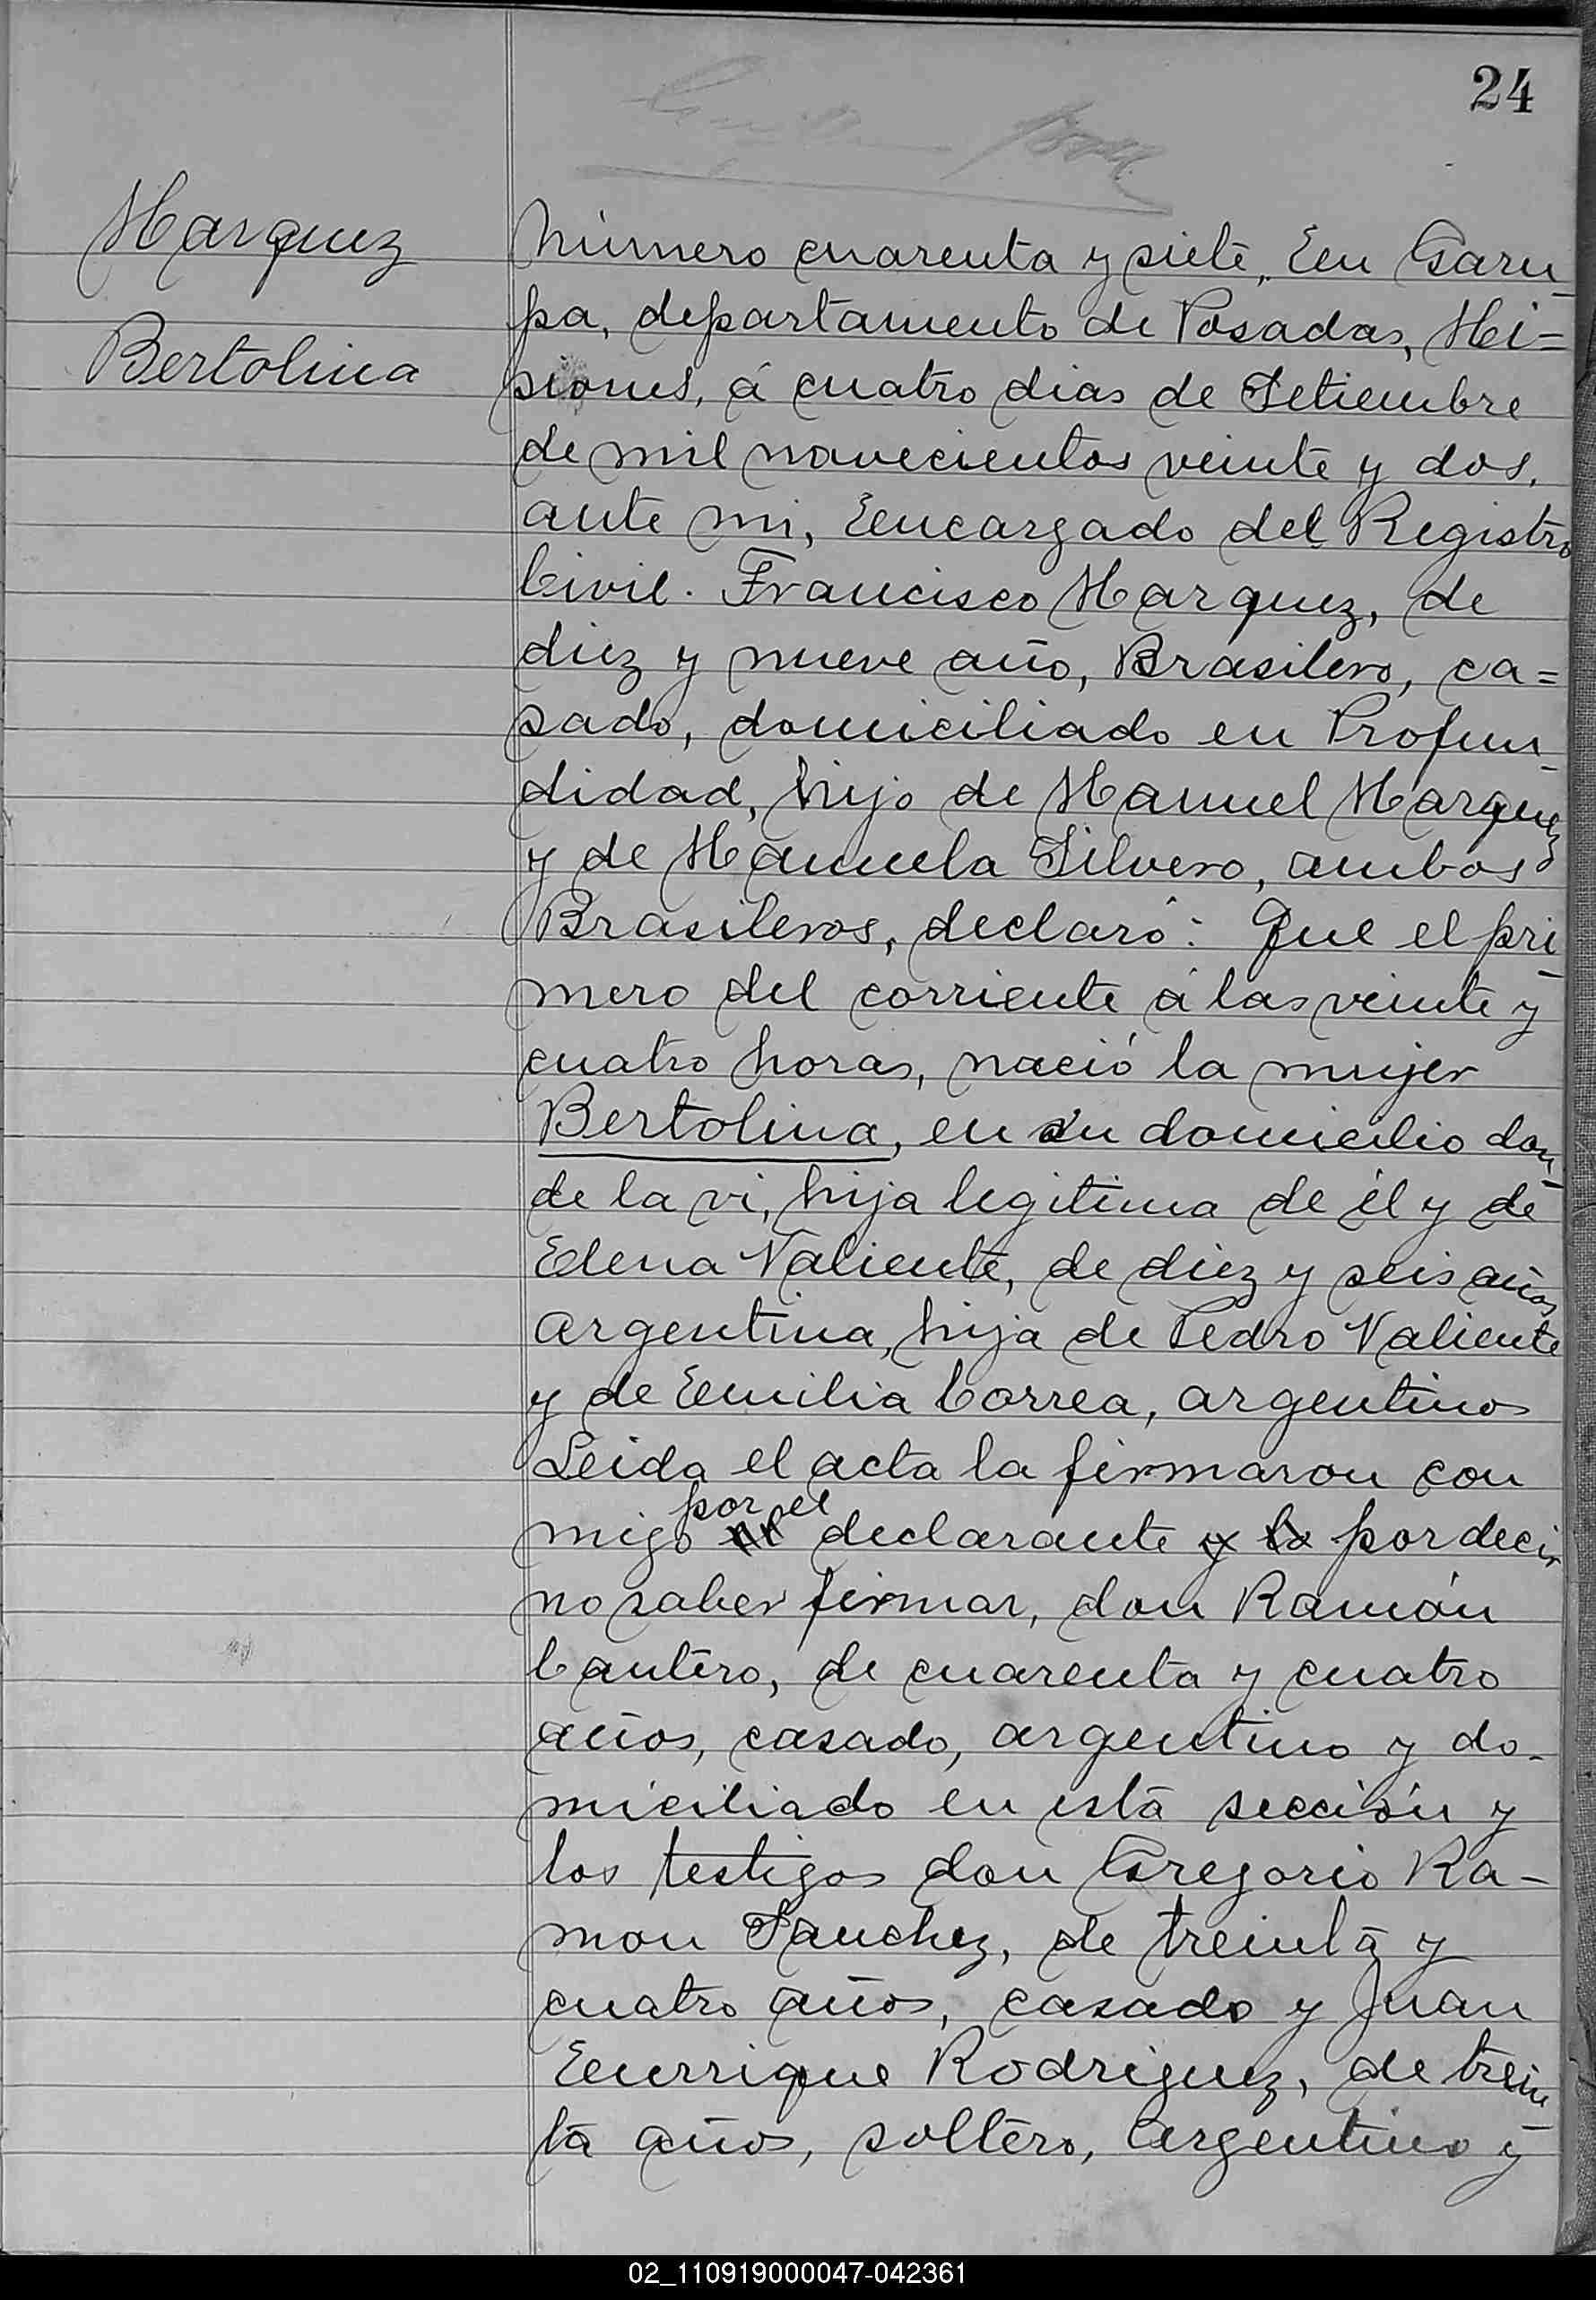 24
Marquez
Bertolina
Número cuarenta y siete, En Garu-
pa, departamento de Posadas, Mi=
siones, á cuatro dias de Setiembre
de mil novecientos veinte y dos,
ante mi, Encargado del Registro
Civil. Francisco Marquez, de
diez y nueve año, Brasilero, ca=
sado, domiciliado en Profun-
didad, hijo de Manuel Marquez
y de Manuela Silvero, ambos
Brasileros, declaró: Que el pri-
mero del corriente á las veinte y
cuatro horas, nació la mujer
Bertolina, en su domicilio don-
de la vi, hija legitima de él y de
Elena Valiente, de diez y seis años
argentina, hija de Pedro Valiente
y de Emilia Correa, argentinos
Leida el acta la firmaron con
migo por el declarante y la por decir
no saber firmar, don Ramón
Cantero, de cuarenta y cuatro
años, casado, argentino y do-
miciliado en esta sección y
los testigos don Gregorio Ra-
mon Sanchez, de treinta y
cuatro años, casado y Juan
Enrrique Rodriguez, de trein-
ta años, soltero, argentino y
02_110919000047-042361